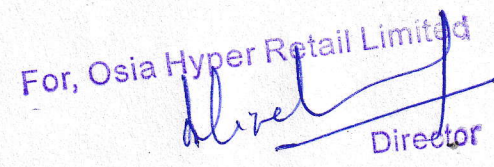 For, Osia Hyper Retail Limited
Director